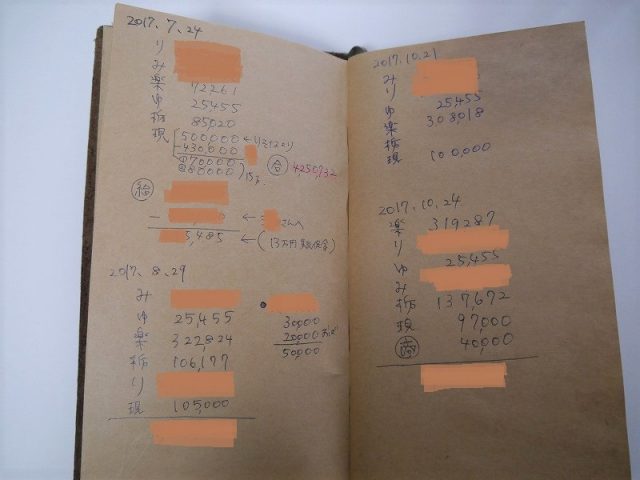 2017、7、24
り
み
楽 72261
ゆ 25455
栃 85020
現 500000 ←
-430,000
70000
80000
合 4250732
給
- ← さんへ
5,485 ← (13万円
2017、8、29
み
ゆ 25,455
楽 322,824
栃 106,177
り
現 105,000
30,000
20,000
50,000
2017、10、21
み
り
ゆ 25,455
楽 308,018
栃
現 100,000
2017、10、24
楽 319287
り
ゆ 25,455
み
栃 137,672
現 97,000
商 40,000